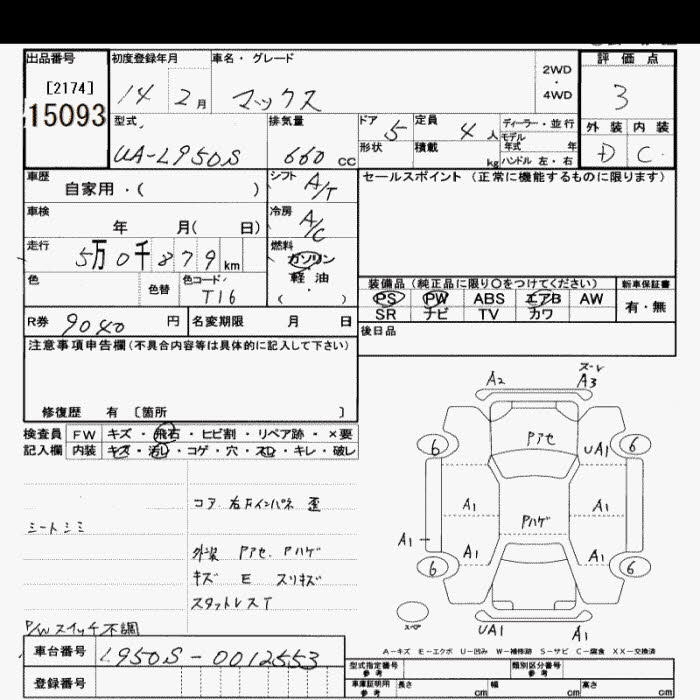 出品番号 初度登録年月 車名・グレード 評価点
[2174] 14 2月 マックス 2WD・4WD 3
15093
型式 排気量 ドア 定員 ディーラー・並行 外装 内装
UA-L950S 660 CC 5 4人 モデル年式 年 D C
形状 積載 kg ハンドル 左・右
車歴 シフト セールスポイント (正常に機能するものに限ります)
自家用・( ) A/T
車検 冷房
年 月( 日) A/C
走行 燃料
5万0千879km ガソリン
色 色替 色コード 軽油 装備品 (純正品に限り○をつけてください) 新車保証書
T16 ・( ) PS PW ABS エアB AW 有・無
SR ナビ TV カワ
R券 9040 円 名変期限 月 日 後日品
注意事項申告欄(不具合内容等は具体的に記入して下さい)
修復歴 有 〔箇所 〕
検査員 FW キズ・飛石・ヒビ割・リペア跡・×要
記入欄 内装 キズ・汚レ・コゲ・穴・スレ・キレ・破レ
コア 右Fインパネ 歪
シートシミ
外装 Pアセ Pハゲ
キズ E スリキズ
スタットレスT
P/Wスイッチ不調
A2 スーレ A3
6 Pアセ UA1 6
A1 A1
Pハゲ
A1 A1 A1
6 6
スペア UA1 A1
A-キズ E-エクボ U-凹み W-補修跡 S-サビ C-腐食 XX-交換済
車台番号 L950S-0012553
型式指定番号 参考 類別区分番号 参考
登録番号 車庫証明用 参考 長さ cm 幅 cm 高さ cm